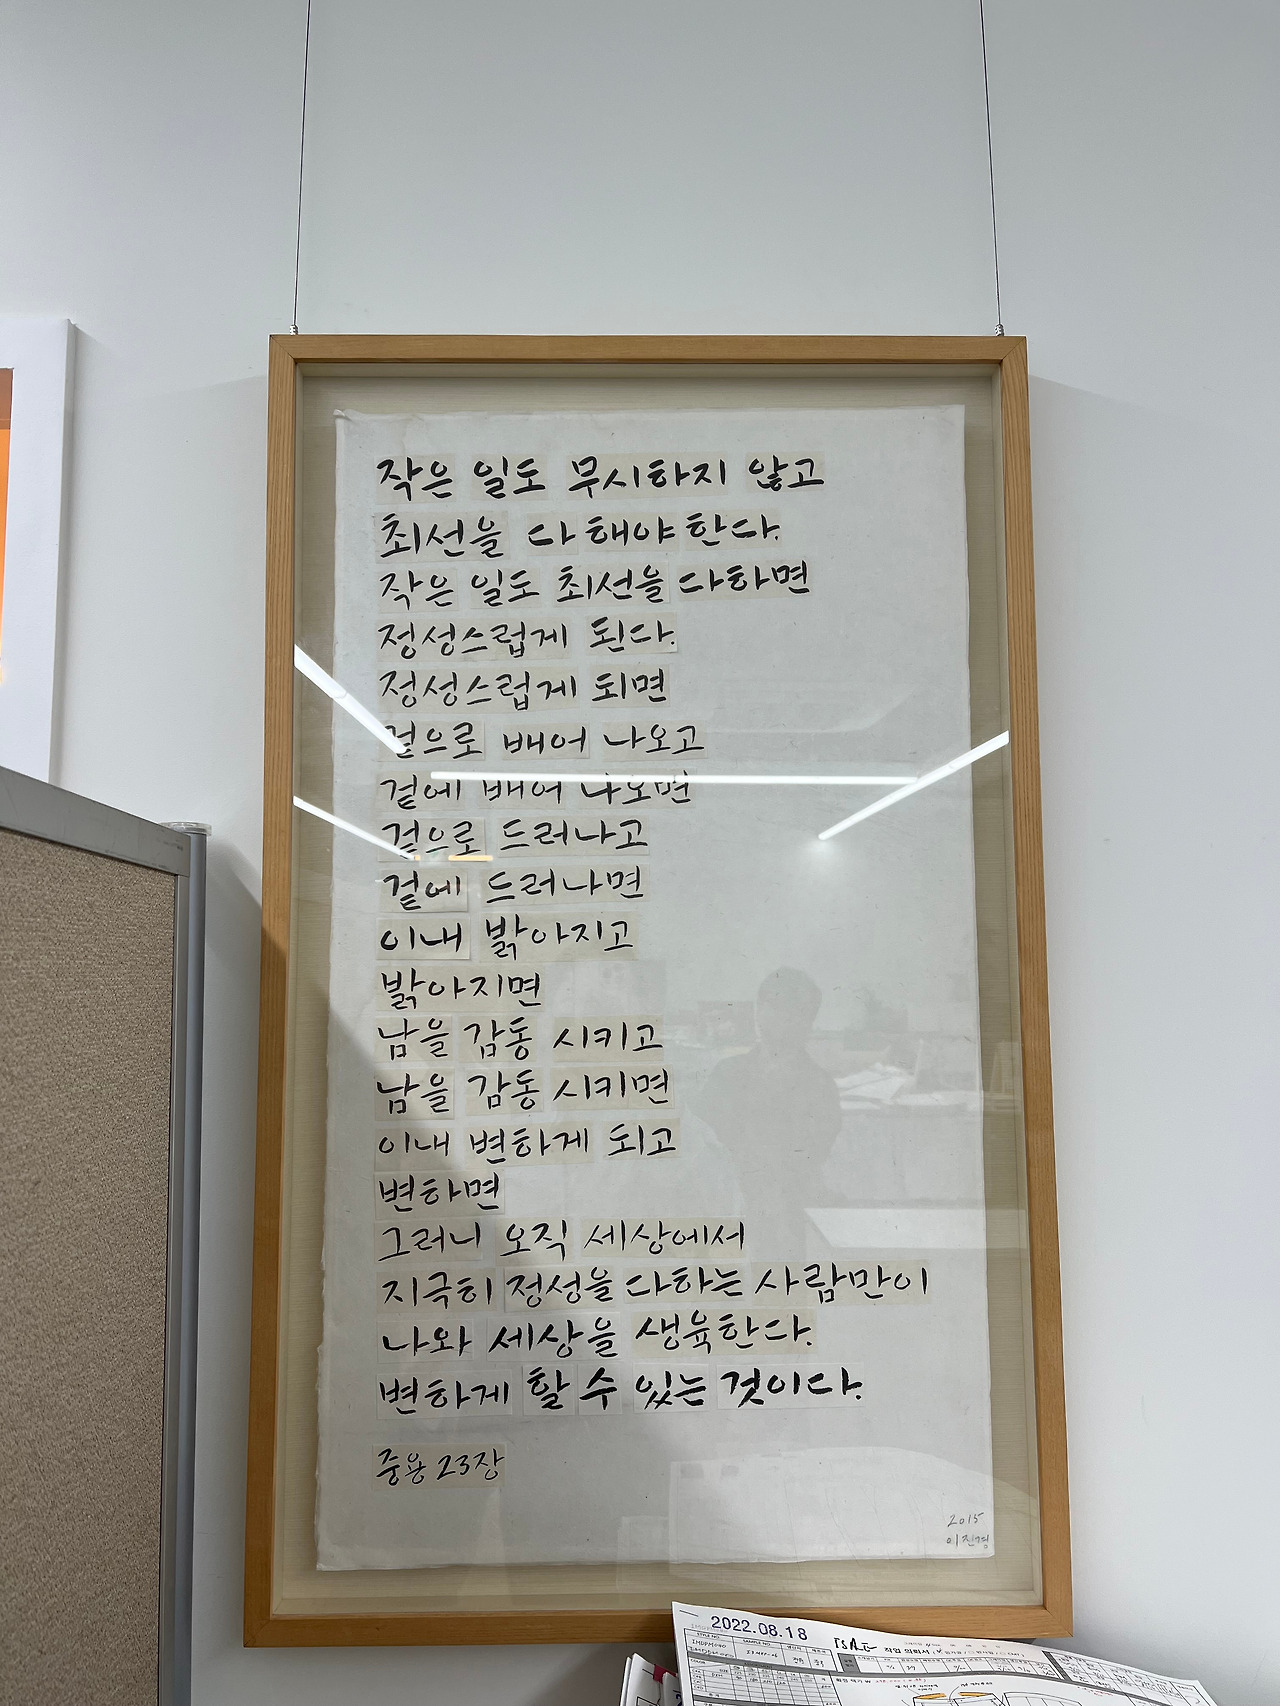 작은 일도 무시하지 않고
최선을 다해야한다.
작은 일도 최선을 다하면
정성스럽게 된다.
정성스럽게 되면
겉으로 배어 나오고
겉에 배어 나오면
겉으로 드러나고
겉에 드러나면
이내 밝아지고
밝아지면
남을 감동 시키고
남을 감동 시키면
이내 변하게 되고
변하면
그러니 오직 세상에서
지극히 정성을 다하는 사람만이
나와 세상을 생육한다.
변하게 할 수 있는 것이다.
중용 23장
2015
이진경
2022.08.18
작업 의뢰서